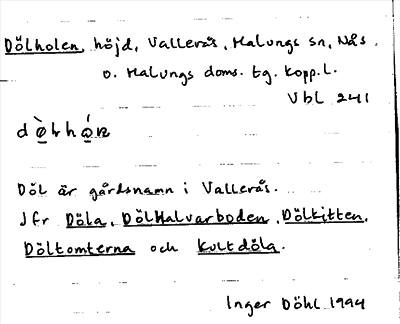 Dölholen, höjd, Vallerås, Malungs sn, Nås
o. Malungs doms. tg. Kopp. l.
Vbl 241
Döl är gårdsnamn i Vallerås.
Jfr Döla, DölHalvarboden, Dölkitten,
Döltomterna och Kultdöla.
Inger Döhl 1994